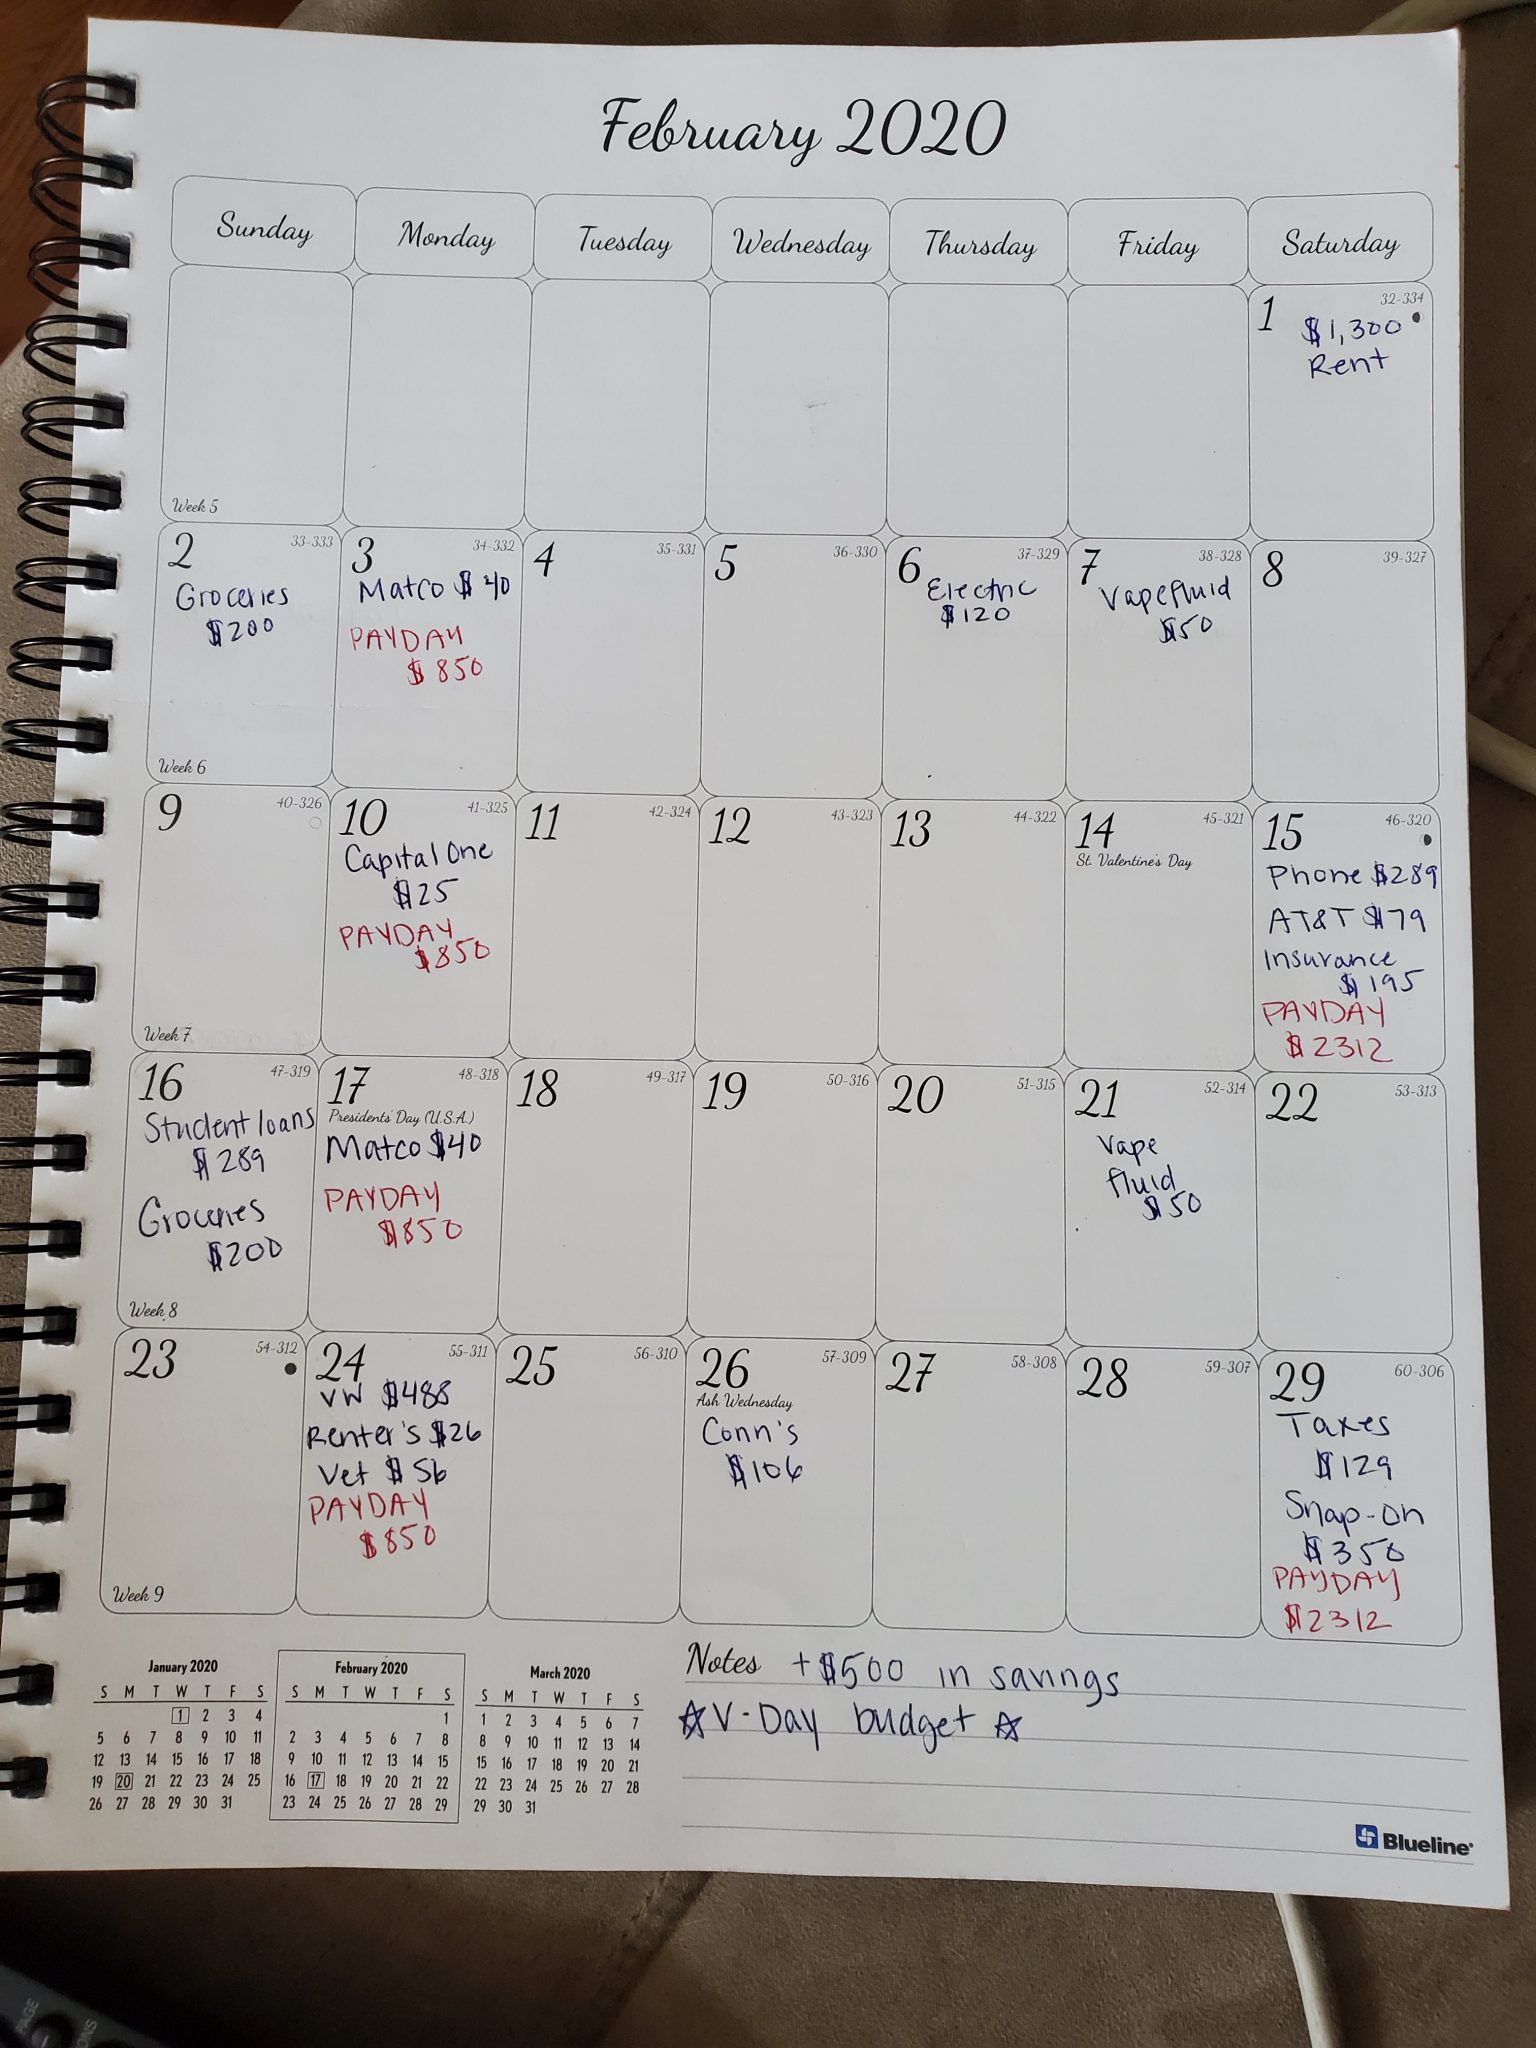 February 2020
Sunday Monday Tuesday Wednesday Thursday Friday Saturday
Week 5
1 32-334
$1,300
Rent
2 33-333
Groceries
$200
Week 6
3 34-332
Matco $40
PAYDAY
$850
4 35-331
5 36-330
6 37-329
Electric
$120
7 38-328
Vapefluid
$50
8 39-327
9 40-326
Week 7
10 41-325
Capital One
$25
PAYDAY
$850
11 42-324
12 43-323
13 44-322
14 45-321
St. Valentine's Day
15 46-320
Phone $289
AT&T $79
Insurance
$195
PAYDAY
$2312
16 47-319
Student loans
$289
Groceries
$200
Week 8
17 48-318
Presidents' Day (U.S.A.)
Matco $40
PAYDAY
$850
18 49-317
19 50-316
20 51-315
21 52-314
Vape
fluid
$50
22 53-313
23 54-312
Week 9
24 55-311
VW $488
Renter's $26
Vet $56
PAYDAY
$850
25 56-310
26 57-309
Ash Wednesday
Conn's
$106
27 58-308
28 59-307
29 60-306
Taxes
$129
Snap-on
$350
PAYDAY
$2312
January 2020
S M T W T F S
1 2 3 4
5 6 7 8 9 10 11
12 13 14 15 16 17 18
19 20 21 22 23 24 25
26 27 28 29 30 31
February 2020
S M T W T F S
1
2 3 4 5 6 7 8
9 10 11 12 13 14 15
16 17 18 19 20 21 22
23 24 25 26 27 28 29
March 2020
S M T W T F S
1 2 3 4 5 6 7
8 9 10 11 12 13 14
15 16 17 18 19 20 21
22 23 24 25 26 27 28
29 30 31
Notes +$500 in savings
☆V-Day budget☆
Blueline
PAGE